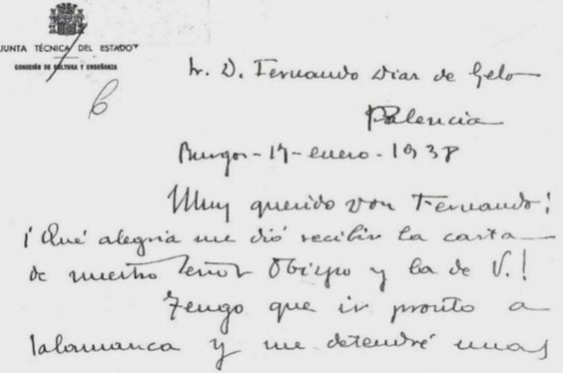 JUNTA TÉCNICA DEL ESTADO
COMISIÓN DE CULTURA Y ENSEÑANZA
6
Sr. D. Fernando Diaz de Gelo
Palencia
Burgos - 17 - enero - 1938
Muy querido Don Fernando:
¡Qué alegria me dió recibir la carta
de nuestro Señor Obispo y la de V.!
Tengo que ir pronto a
Salamanca y me detendré unas